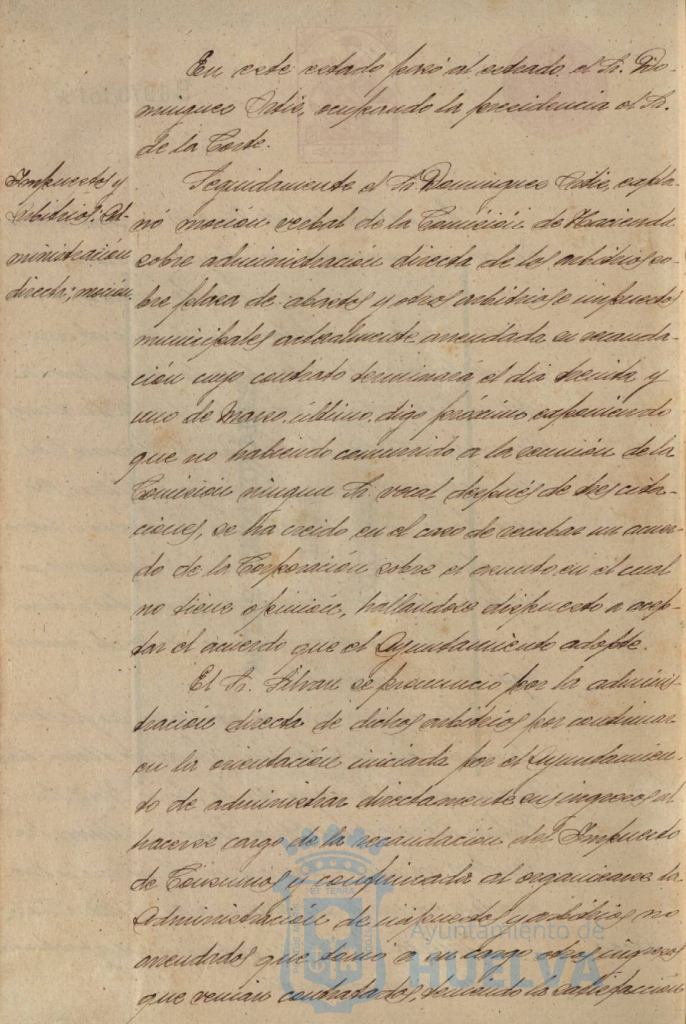 En este estado pasó al estrado, el Sr. Do-
minguez Ortiz, ocupando la presidencia el Sr.
de la Corte.
Impuestos y
arbitrios. Ad-
ministración
directa; moción.
Seguidamente el Sr. Dominguez Ortiz, expla-
nó moción verbal de la Comisión de Hacienda
sobre administración directa de los arbitrios so-
bre plaza de abastos y otros arbitrios e impuestos
municipales actualmente arrendada su recauda-
ción cuyo contrato terminará el dia treinta y
uno de Marzo último, digo próximo, exponiendo
que no habiendo concurrido a la reunión de la
Comisión ningun Sr. vocal después de tres cita-
ciones, se ha creido en el caso de recabar un acuer-
do de la Corporación sobre el asunto en el cual
no tiene opinión, hallandose dispuesto a acep-
tar el acuerdo que el Ayuntamiento adopte.
El Sr. Silvan se pronunció por la adminis-
tración directa de dichos arbitrios por continuar
en la orientación iniciada por el Ayuntamien-
to de administrar directamente sus ingresos al
hacerse cargo de la recaudación del Impuesto
de Consumos y confirmada al organizarse la
Administración de impuestos y arbitrios no
arrendados que tomó a su cargo otros ingresos
que venian contratados, teniendo la satisfacción
Ayuntamiento de
HUELVA